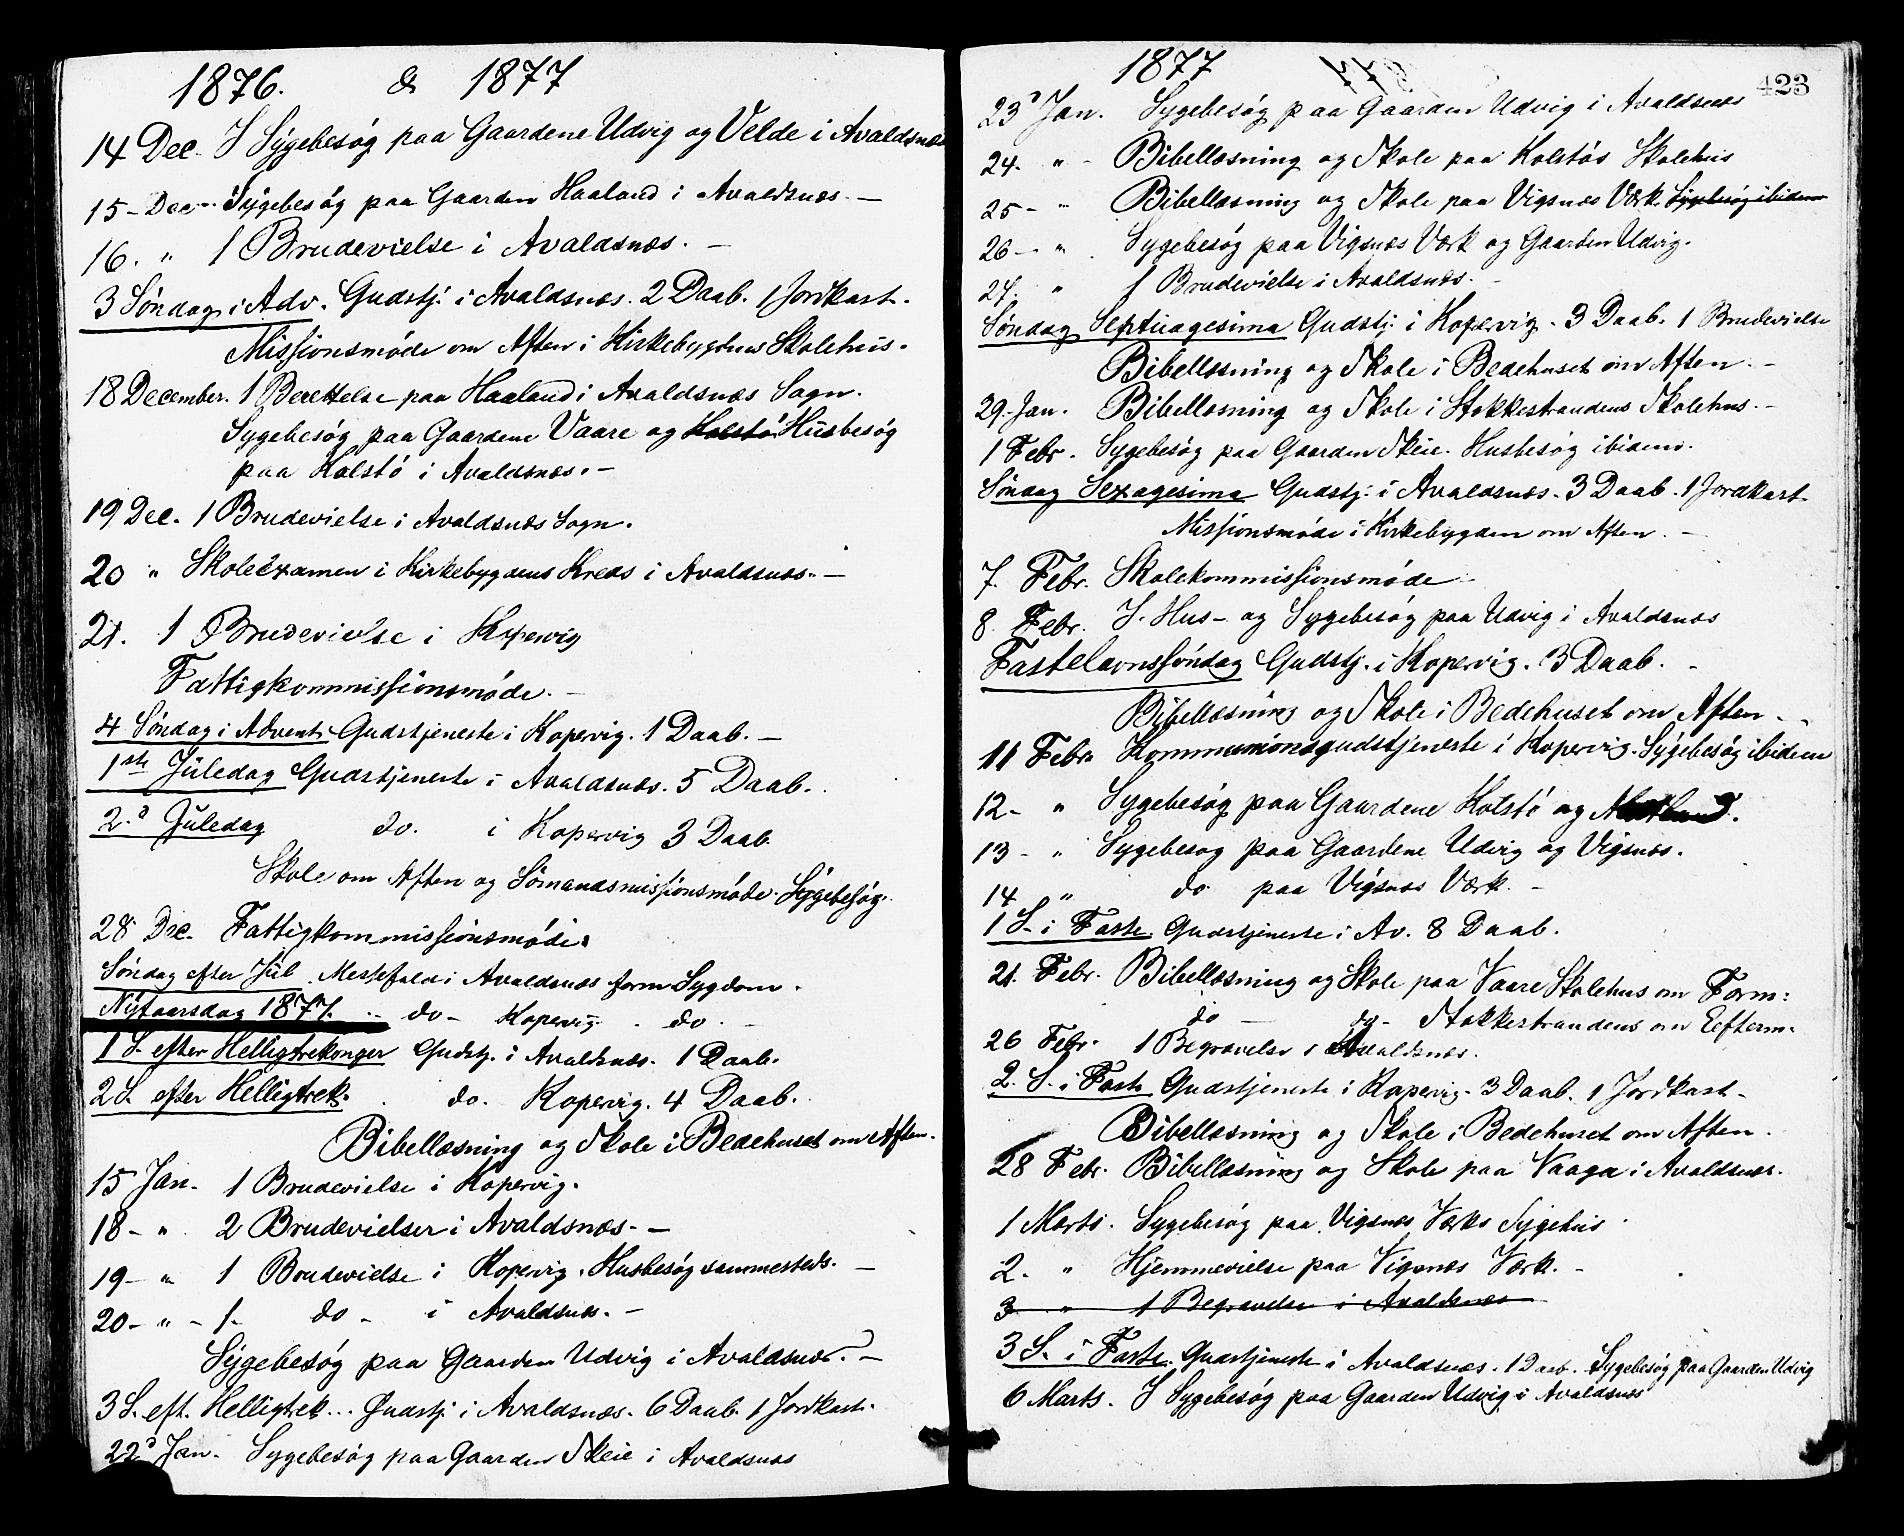 1876. & 1877
14 Dec. I Sygebesøg paa Gaardene Udvig og Velde i Avaldsnæs
15 – Dec. Sygebesøg paa Gaarden Haaland i Avaldsnæs. –
16. " 1 Brudevielse i Avaldsnæs. –
3 Søndag i Adv. Gudstj. i Avaldsnæs. 2 Daab. 1 Jordkast.
Missionsmøde om Aften i Kirkebygdens Skolehus.
18 December. 1 Berettelse paa Haaland i Avaldsnæs Sogn.
Sygebesøg paa Gaardene Vaare og Kolstø Husbesøg
paa Kolstø i Avaldsnæs. –
19 Dec. 1 Brudevielse i Avaldsnæs Sogn.
20 " Skoleexamen i Kirkebygdens Kreds i Avaldsnæs. –
21. 1 Brudevielse i Kopervig
Fattigkommissionsmøde. –
4 Søndag i Advent Gudstjeneste i Kopervig. 1 Daab. –
1ste Juledag Gudstjeneste i Avaldsnæs. 5 Daab.
2.d Juledag do. i Kopervig 3 Daab.
Skole om Aften og Sømandsmissionsmøde. Sygebesøg.
28 Dec. Fattigkommissionsmøde
Søndag efter Jul. Messefald i Avaldsnæs form Sygdom.
Nytaarsdag 1877. do – Kopervig. do. –
1 S. efter Helligtrekonger Gudstj. i Avaldsnæs. 1 Daab.
2 S. efter Helligtrek. do. Kopervig. 4 Daab.
Bibellæsning og Skole i Bedehuset om Aften.
15 Jan. 1 Brudevielse i Kopervig.
18 – " 2 Brudevielser i Avaldsnæs. –
19 – " 1 Brudevielse i Kopervig. Husbesøg sammesteds. –
20 – " – 1. do – i Avaldsnæs. –
Sygebesøg paa Gaarden Udvig i Avaldsnæs. –
3 S. eft. Helligtrek... Gudstj i Avaldsnæs. 6 Daab. 1 Jordkast.
22d Jan. Sygebesøg paa Gaarden Skeie i Avaldsnæs
1877
423
23d Jan. Sygebesøg paa Gaarden Udvig i Avaldsnæs
24. " – Bibellæsning og Skole paa Kolstøs Skolehus
25 – " Bibellæsning og Skole paa Vigsnæs Værk. Sygebesøg ibidem
26 – " Sygebesøg paa Vigsnæs Værk og Gaarden Udvig.
27. " 1 Brudevielse i Avaldsnæs. –
Søndag Septuagesima Gudstj. i Kopervig. 3 Daab. 1 Brudevielse
Bibellæsning og Skole i Bedehuset om Aften. –
29. Jan. Bibellæsning og Skole i Stokkestrandens Skolehus. –
1 Febr. Sygebesøg paa Gaarden Skeie. Husbesøg ibidem.
Søndag Sexagesima Gudstj. i Avaldsnæs. 3 Daab. 1 Jordkast.
Missionsmøde i Kirkebygden om Aften. –
7. Febr. Skolekommissionsmøde
8. Febr. I. Hus- og Sygebesøg paa Udvig i Avaldsnæs
Fastelavnssøndag Gudstj. i Kopervig. 3 Daab. –
Bibellæsning og Skole i Bedehuset om Aften. –
11 Febr. Kommunionsgudstjeneste i Kopervig. Sygebesøg ibidem
12 – " Sygebesøg paa Gaardene Kolstø og
13 – " Sygebesøg paa Gaardene Udvig og Vigsnæs.
14 " do paa Vigsnæs Værk. –
1 S. i Faste. Gudstjeneste i Av. 8 Daab.
21. Febr. Bibellæsning og Skole paa Vaare Skolehus om Form:
do – do – Stokkestrandens om Efterm.
26 Febr. 1 Begravelse i Avaldsnæs.
2. S. i Faste Gudstjeneste i Kopervig. 3 Daab. 1 Jordkast –
Bibellæsning og Skole i Bedehuset om Aften.
28 Febr. Bibellæsning og Skole paa Vaaga i Avaldsnæs.
1 Marts. Sygebesøg paa Vigsnæs Værks Sygehus
2. " Hjemmevielse paa Vigsnæs Værk. –
3 " 1 Begravelse i Avaldsnæs
3 S. i Faste. Gudstjeneste i Avaldsnæs. 1 Daab. Sygebesøg paa Gaarden Udvig
6 Marts. I Sygebesøg paa Gaarden Udvig i Avaldsnæs